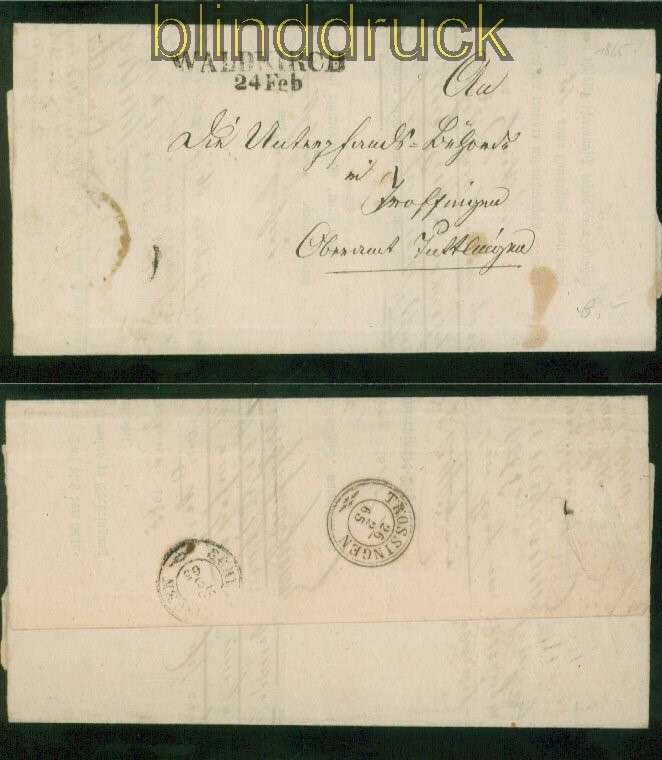 blinddruck
WALDKIRCH
24 Feb
1865
An
Die Unterpfands=Behörde
in
Trossingen
Oberamt Tuttlingen
8,–
TROSSINGEN
26
2
65